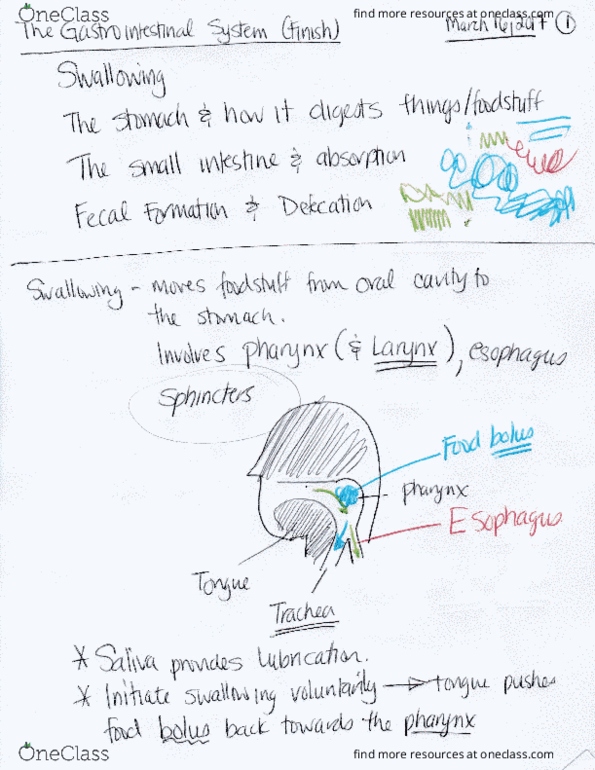 OneClass
find more resources at oneclass.com
The Gastrointestinal System (finish)
March 16, 2017 1
Swallowing
The stomach & how it digests things/foodstuff
The small intestine & absorption
Fecal Formation & Defecation
Swallowing - moves foodstuff from oral cavity to
the stomach.
Involves pharynx (& Larynx), esophagus
Sphincters
Food bolus
pharynx
Esophagus
Tongue
Trachea
* Saliva provides lubrication.
* Initiate swallowing voluntarily → tongue pushes
food bolus back towards the pharynx
OneClass
find more resources at oneclass.com